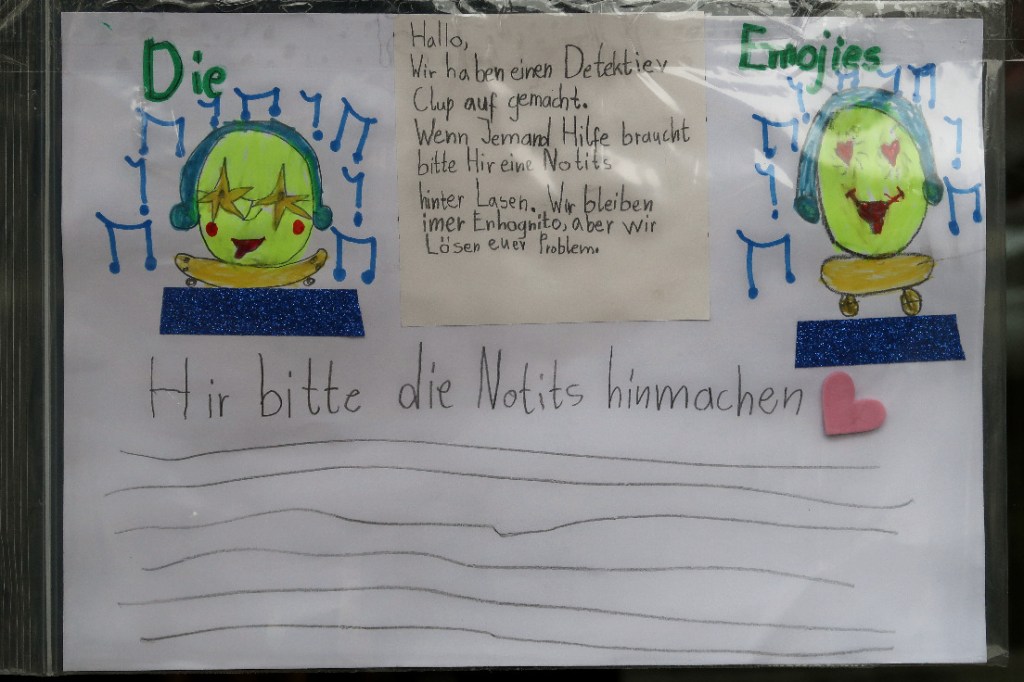 Die
Emojies
Hallo,
Wir haben einen Detektiev
Clup auf gemacht.
Wenn Jemand Hilfe braucht
bitte Hir eine Notits
hinter Lasen. Wir bleiben
imer Enkognito, aber wir
Lösen euer Problem.
Hir bitte die Notits hinmachen